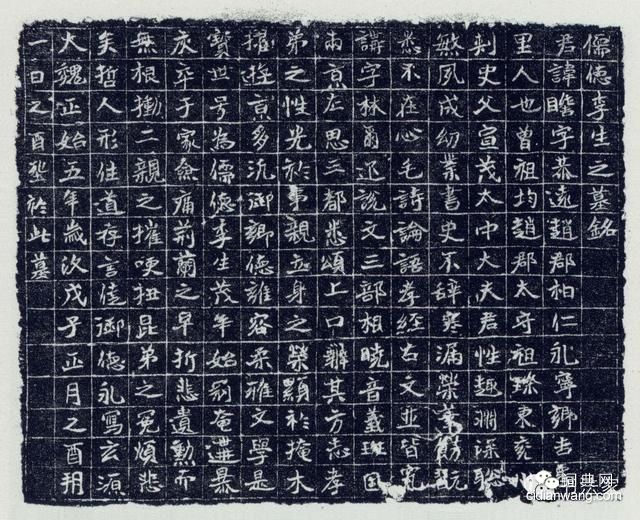 儒德李生之墓銘
君諱瞻字恭遠趙郡柏仁永寧鄉吉
里人也曾祖均趙郡太守祖璨東兗州
刺史父宣茂太中大夫君性趣淵深聡
敏夙成幼業書史不辞寒漏榮翫
悉不在心毛詩論語孝經古文並皆究
講字林爾迩說文三部相曉音義班固
兩京左思三都悉頌上口辨其方志孝
弟之性光於事親立身之榮顯於掩木
擢遊京多沉鄉德誰容柔雅文學是
寶世号為儒德李生茂年始奄遘暴
疾卒于家僉痛荊蘭之早折悲遺勳而
無根慟二親之摧哽扭昆弟之冤煩悲
矣哲人形往道存言佳德永寫玄源
大魏正始五年歲次戊子正月之酉朔
一日之酉塟於此墓
词典网
cidianwang.com